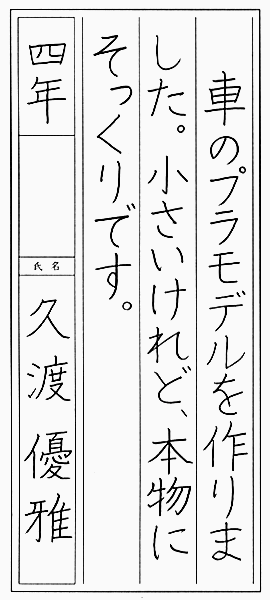 車のプラモデルを作りま
した。小さいけれど、本物に
そっくりです。
四年
氏名
久渡優雅